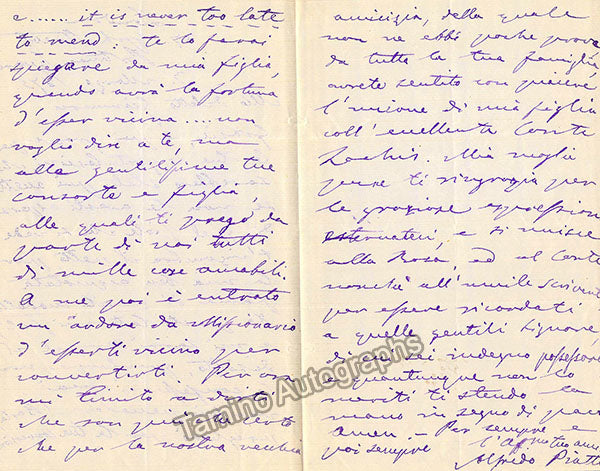 e...... it is never too late
to mend: te lo farai
spiegare da mia figlia,
quando avrà la fortuna
d'esser vicina.... non
voglio dire a te, ma
alle gentilissime tue
consorte e figlia,
alle quali ti prego da
parte di noi tutti
di mille cose amabili.
A me poi è entrato
un ardore da Missionario
d'esserti vicino per
convertirti. Per ora
mi limito a dirti
che son più che certo
che per la nostra vecchia
amicizia, della quale
non ne ebbi poche prove
da tutta la tua famiglia,
avrete sentito con piacere
l'unione di mia figlia
coll'eccellente Conte
Lochis. Mia moglie
pure ti ringrazia per
le graziose espressioni
esternateci, e si unisce
alla Rosa, ed al Conte
nonchè all'umile scrivente
per essere ricordati
a quelle gentili signore,
di cui sei indegno possessore
e quantunque non lo
meriti ti stendo la
mano in segno di pace
amen. - Per sempre e
poi sempre l'
Alfredo Piatti
Tamino Autographs